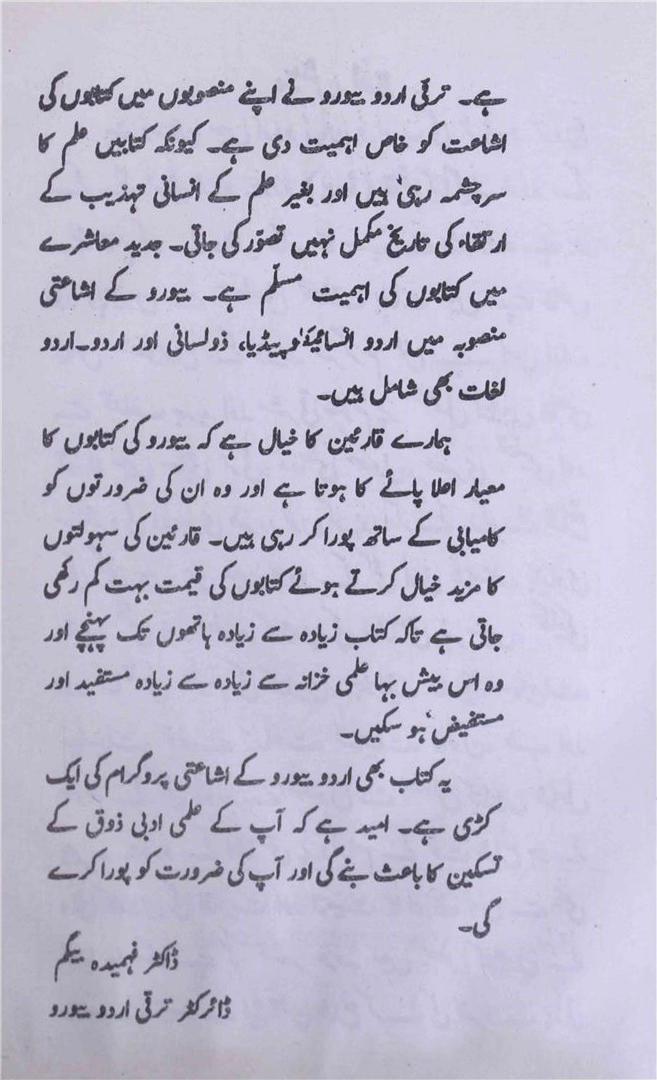 ہے۔ ترقی اردو بیورو نے اپنے منصوبوں میں کتابوں کی
اشاعت کو خاص اہمیت دی ہے۔ کیونکہ کتابیں علم کا
سرچشمہ رہی ہیں اور بغیر علم کے انسانی تہذیب کے
ارتقاء کی تاریخ مکمل نہیں تصوّر کی جاتی۔ جدید معاشرے
میں کتابوں کی اہمیت مسلّم ہے۔ بیورو کے اشاعتی
منصوبہ میں اردو انسائیکلوپیڈیا، ذولسانی اور اردو۔اردو
لغات بھی شامل ہیں۔
ہمارے قارئین کا خیال ہے کہ بیورو کی کتابوں کا
معیار اعلا پائے کا ہوتا ہے اور وہ ان کی ضرورتوں کو
کامیابی کے ساتھ پورا کر رہی ہیں۔ قارئین کی سہولتوں
کا مزید خیال کرتے ہوئے کتابوں کی قیمت بہت کم رکھی
جاتی ہے تاکہ کتاب زیادہ سے زیادہ ہاتھوں تک پہنچے اور
وہ اس بیش بہا علمی خزانہ سے زیادہ سے زیادہ مستفید اور
مستفیض ہو سکیں۔
یہ کتاب بھی اردو بیورو کے اشاعتی پروگرام کی ایک
کڑی ہے۔ امید ہے کہ آپ کے علمی ادبی ذوق کے
تسکین کا باعث بنے گی اور آپ کی ضرورت کو پورا کرے
گی۔
ڈاکٹر فہمیدہ بیگم
ڈائرکٹر ترقی اردو بیورو